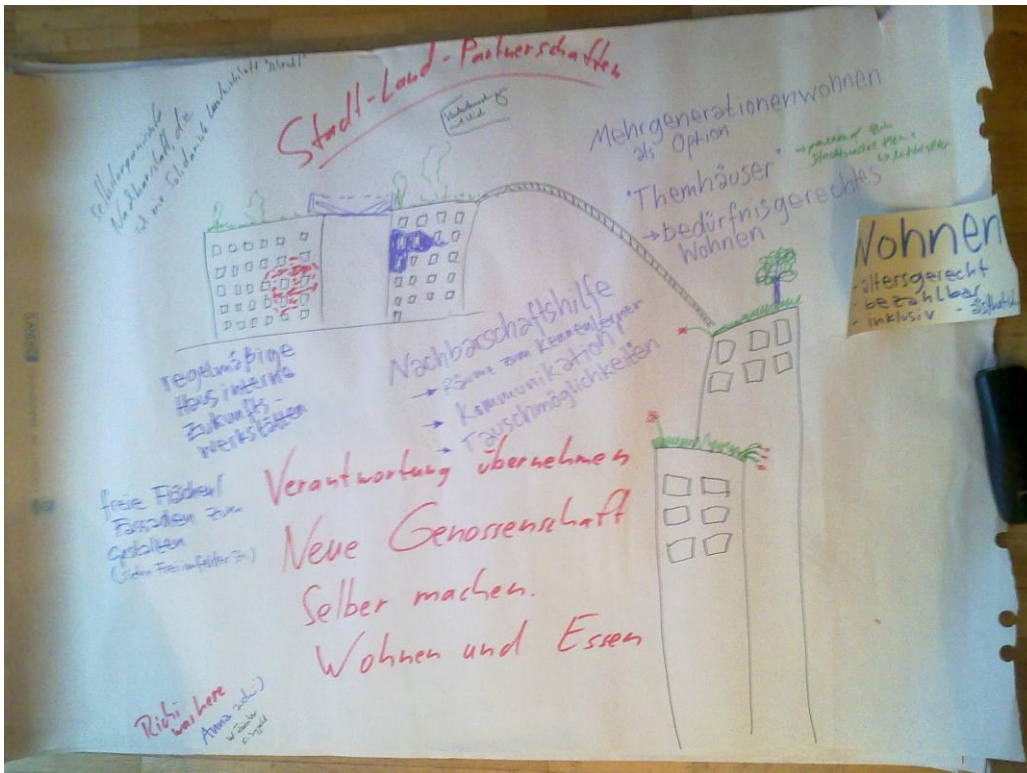 Stadt-Land-Partnerschaften
selbstorganisierte
Nachbarschaft, die
ist wie Solidarische Landwirtschaft
Mehrgenerationenwohnen
als Option
"Themhäuser"
→ bedürfnisgerechtes
Wohnen
Wohnen
- altersgerecht
- bezahlbar
- inklusiv
regelmäßige
Hausinterne
Zukunfts-
werkstätten
Nachbarschaftshilfe
→ Räume zum Kennenlernen
→ Kommunikation
→ Tauschmöglichkeiten
freie Flächen/
Fassaden zum
Gestalten
Verantwortung übernehmen
Neue Genossenschaft
Selber machen.
Wohnen und Essen
Richi
was here
Anna